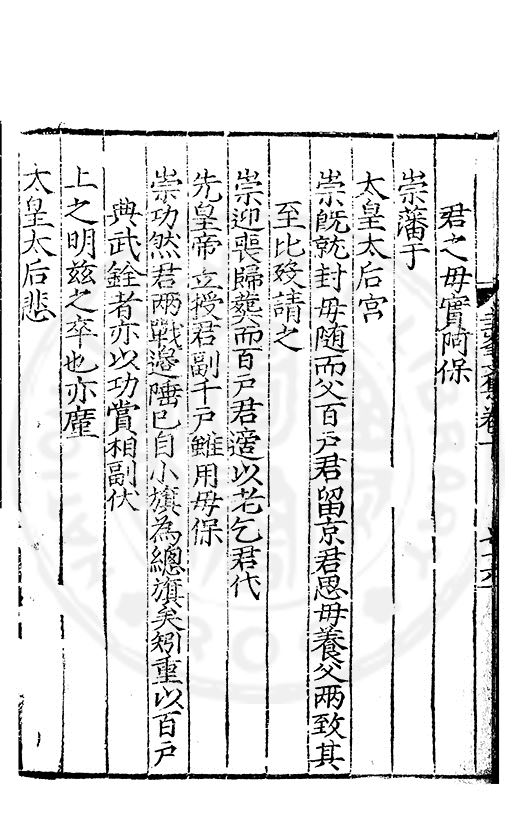 君之毋實阿保
崇藩于
太皇太后宮
崇旣就封毋随而父百戸君留京君思毋養父兩致其
至比歿請之
崇迎喪歸葬而百戸君遂以老乞君代
先皇帝立授君副千戸雖用毋保
崇功然君兩戰邉陲已自小旗為總旗矣矧重以百戸
典武銓者亦以功賞相副伏
上之明兹之卒也亦廑
太皇太后悲